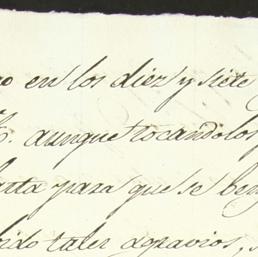 en los diez y siete
aunque tocandolos
para que se
tales agravios,